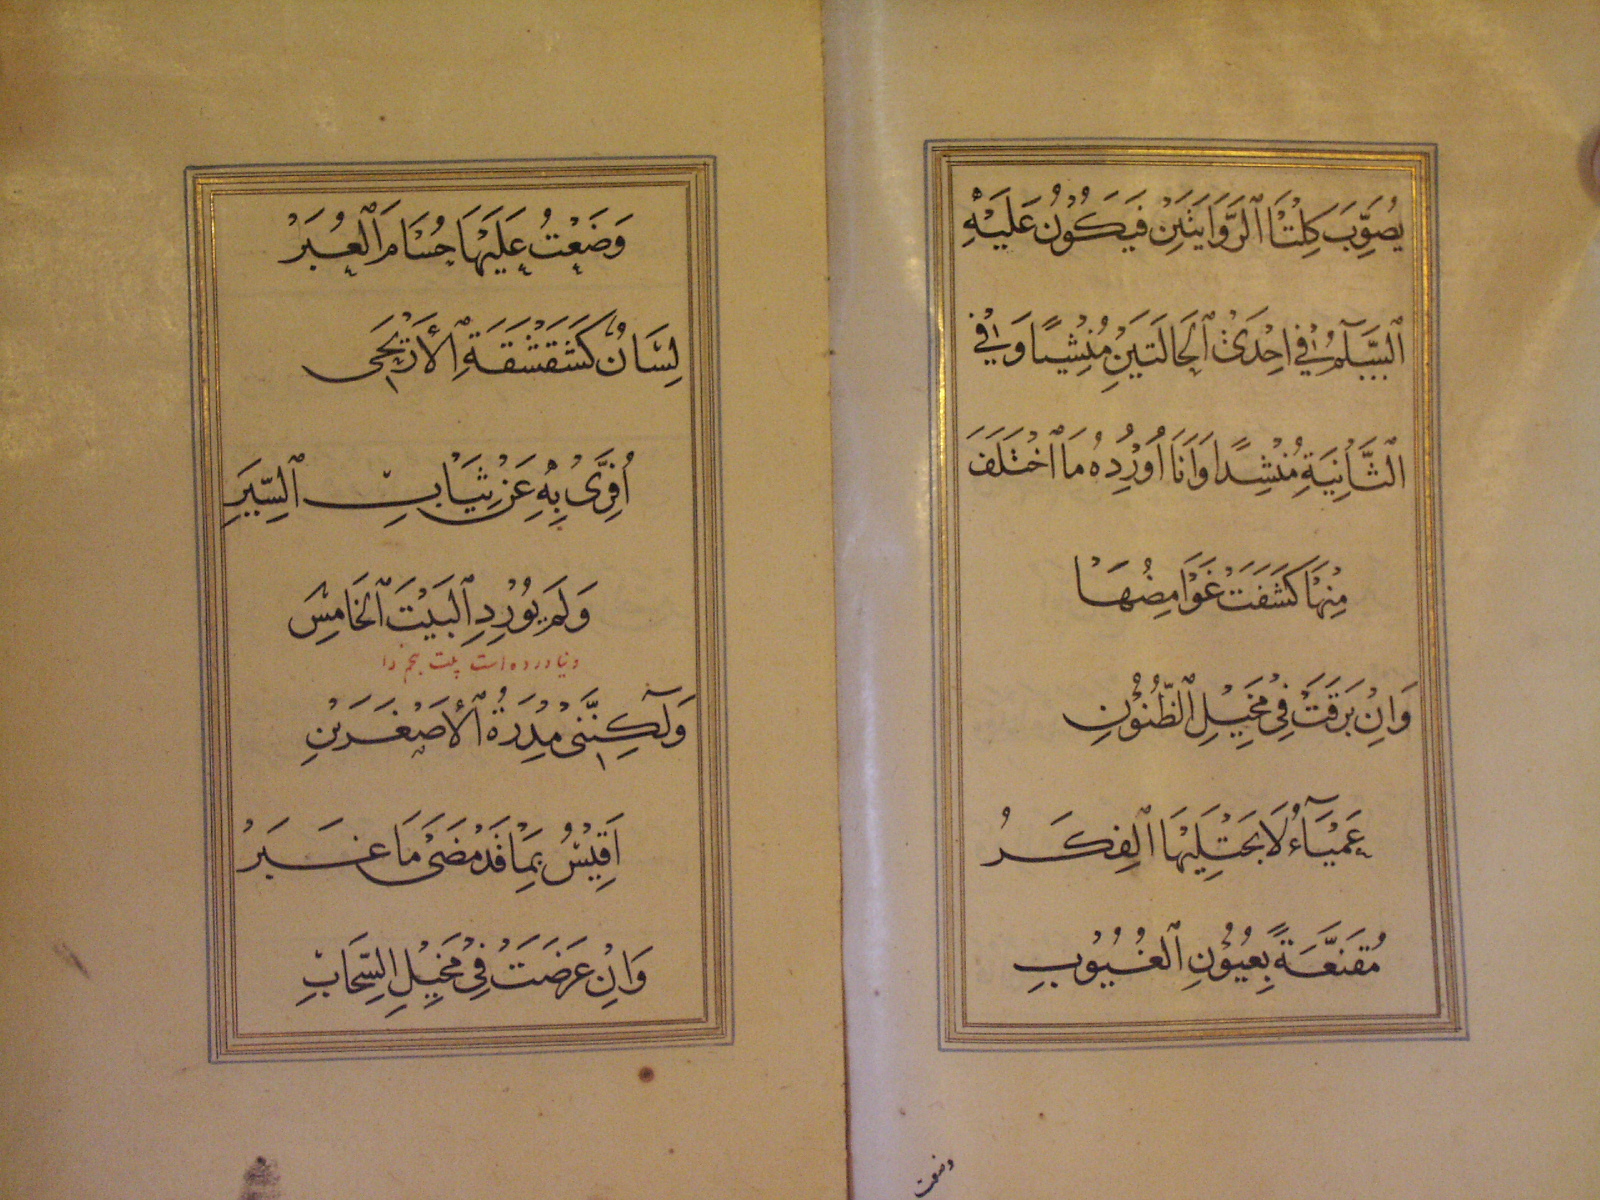 يُصَوِّبَ كِلْتَا ٱلرِّوَايَتَيْنِ فَيَكُوْنُ عَلَيْهِ
ٱلسَّلَآمُ فِيْ اِحْدَىْ ٱلْحَالَتَيْنِ مُنْشِيًا وَفِيْ
ٱلثَّاْنِيَةِ مُنْشِدًا وَاَنَا اُوْرِدُهُ مَا ٱخْتَلَفَ
مِنْهَا كَشَفَتْ غَوَامِضُهَا
وَاِنْ بَرَقَتْ فِيْ مَخِيْلِ ٱلظُّنُوْنِ
عَمْيَآءُ لَا يَجْتَلِيْهَا ٱلْفِكَرُ
مُقَنَّعَةً بِعُيُوْنِ ٱلْغُيُوْبِ
وضعت
وَضَعْتُ عَلَيْهَا حُسَامَ ٱلْعِبَرْ
لِسَانٌ كَشَقْشَقَةِ ٱلْأَرْيَحِى
اُفَرِّىْ بِهِ عَنْ ثِيَابِ ٱلسِّيَرِ
وَلَمْ يُوْرِدِ ٱلْبَيْتَ ٱلْخَامِسَ
ونیاورده است بیت پنجم را
وَلَـٰكِنَّنِىْ مِدْرَةُ ٱلْأَصْغَرَيْنِ
اَقِيْسُ بِمَا قَدْ مَضَىْ مَا غَبَرْ
وَاِنْ عَرَضَتْ فِيْ مَخِيْلِ ٱلسَّحَابِ